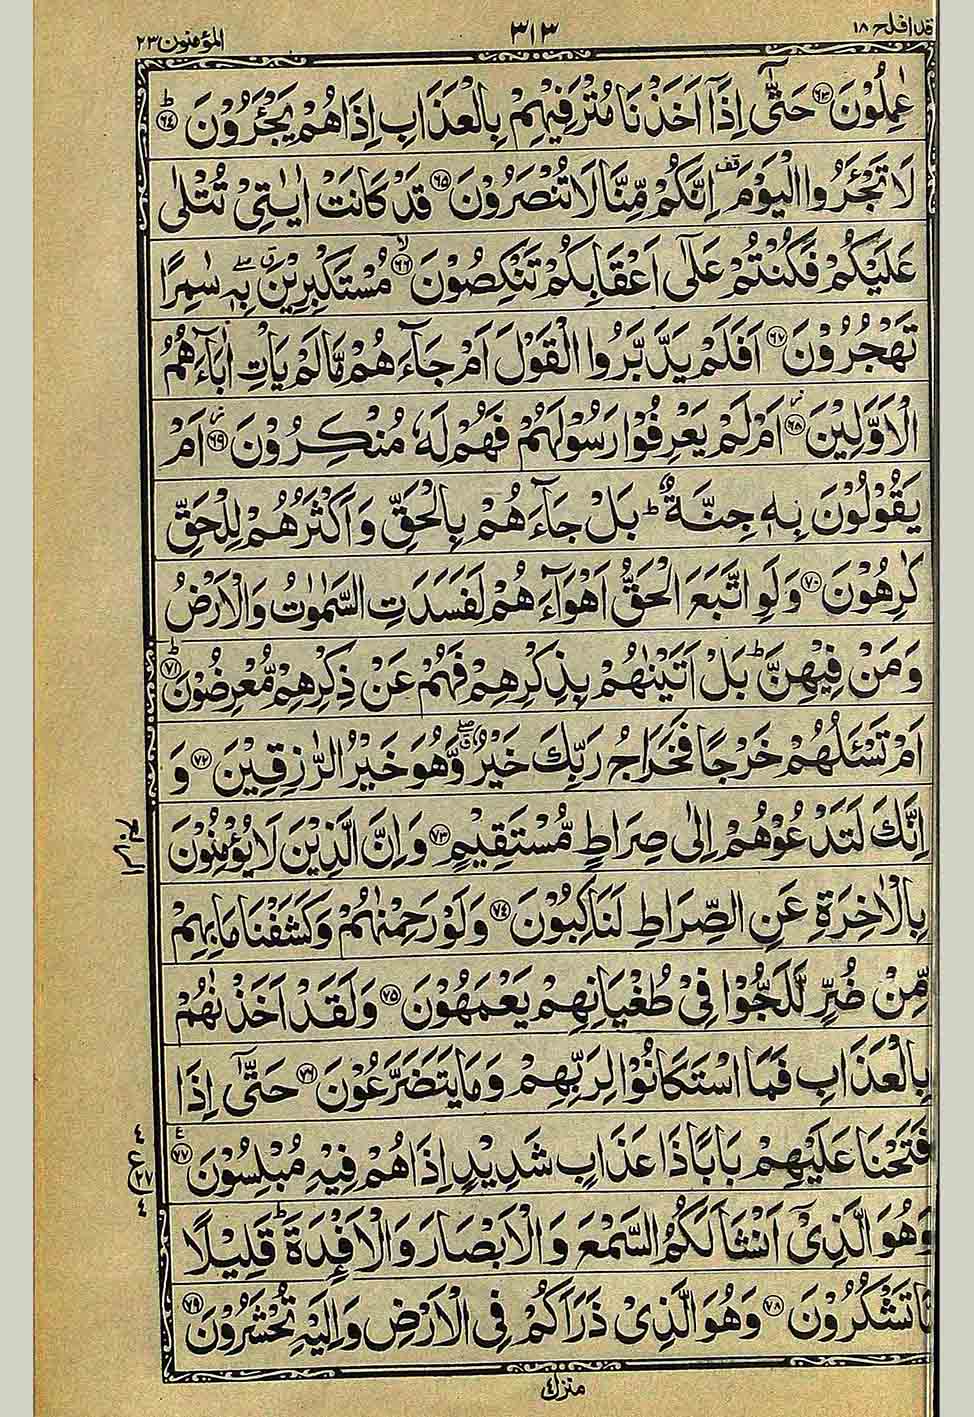 قد افلح ١٨
٣١٣
المؤمنون ٢٣
عٰمِلُوْنَ ﴿۶۳﴾ حَتّٰۤى اِذَاۤ اَخَذْنَا مُتْرَفِيْهِمْ بِالْعَذَابِ اِذَا هُمْ يَجْـَٔرُوْنَ ﴿۶۴﴾ؕ
لَا تَجْـَٔرُوا الْيَوْمَ قف اِنَّكُمْ مِّنَّا لَا تُنْصَرُوْنَ ﴿۶۵﴾ قَدْ كَانَتْ اٰيٰتِيْ تُتْلٰى
عَلَيْكُمْ فَكُنْتُمْ عَلٰۤى اَعْقَابِكُمْ تَنْكِصُوْنَ ﴿۶۶﴾ۙ مُسْتَكْبِرِيْنَ ۖق بِهٖ سٰمِرًا
تَهْجُرُوْنَ ﴿۶۷﴾ اَفَلَمْ يَدَّبَّرُوا الْقَوْلَ اَمْ جَآءَهُمْ مَّا لَمْ يَاْتِ اٰبَآءَهُمُ
الْاَوَّلِيْنَ ﴿۶۸﴾ز اَمْ لَمْ يَعْرِفُوْا رَسُوْلَهُمْ فَهُمْ لَهٗ مُنْكِرُوْنَ ﴿۶۹﴾ز اَمْ
يَقُوْلُوْنَ بِهٖ جِنَّةٌ ؕ بَلْ جَآءَهُمْ بِالْحَقِّ وَاَكْثَرُهُمْ لِلْحَقِّ
كٰرِهُوْنَ ﴿۷۰﴾ وَلَوِ اتَّبَعَ الْحَقُّ اَهْوَآءَهُمْ لَفَسَدَتِ السَّمٰوٰتُ وَالْاَرْضُ
وَمَنْ فِيْهِنَّ ؕ بَلْ اَتَيْنٰهُمْ بِذِكْرِهِمْ فَهُمْ عَنْ ذِكْرِهِمْ مُّعْرِضُوْنَ ﴿۷۱﴾ؕ
اَمْ تَسْـَٔلُهُمْ خَرْجًا فَخَرَاجُ رَبِّكَ خَيْرٌ ۖق وَّهُوَ خَيْرُ الرّٰزِقِيْنَ ﴿۷۲﴾ وَ
اِنَّكَ لَتَدْعُوْهُمْ اِلٰى صِرَاطٍ مُّسْتَقِيْمٍ ﴿۷۳﴾ وَاِنَّ الَّذِيْنَ لَا يُؤْمِنُوْنَ
بِالْاٰخِرَةِ عَنِ الصِّرَاطِ لَنَاكِبُوْنَ ﴿۷۴﴾ وَلَوْ رَحِمْنٰهُمْ وَكَشَفْنَا مَا بِهِمْ
مِّنْ ضُرٍّ لَّلَجُّوْا فِيْ طُغْيَانِهِمْ يَعْمَهُوْنَ ﴿۷۵﴾ وَلَقَدْ اَخَذْنٰهُمْ
بِالْعَذَابِ فَمَا اسْتَكَانُوْا لِرَبِّهِمْ وَمَا يَتَضَرَّعُوْنَ ﴿۷۶﴾ حَتّٰۤى اِذَا
فَتَحْنَا عَلَيْهِمْ بَابًا ذَا عَذَابٍ شَدِيْدٍ اِذَا هُمْ فِيْهِ مُبْلِسُوْنَ ﴿۷۷﴾ع
وَهُوَ الَّذِيْۤ اَنْشَاَ لَكُمُ السَّمْعَ وَالْاَبْصَارَ وَالْاَفْـِٕدَةَ ؕ قَلِيْلًا
مَّا تَشْكُرُوْنَ ﴿۷۸﴾ وَهُوَ الَّذِيْ ذَرَاَكُمْ فِي الْاَرْضِ وَاِلَيْهِ تُحْشَرُوْنَ ﴿۷۹﴾
منزل ٤